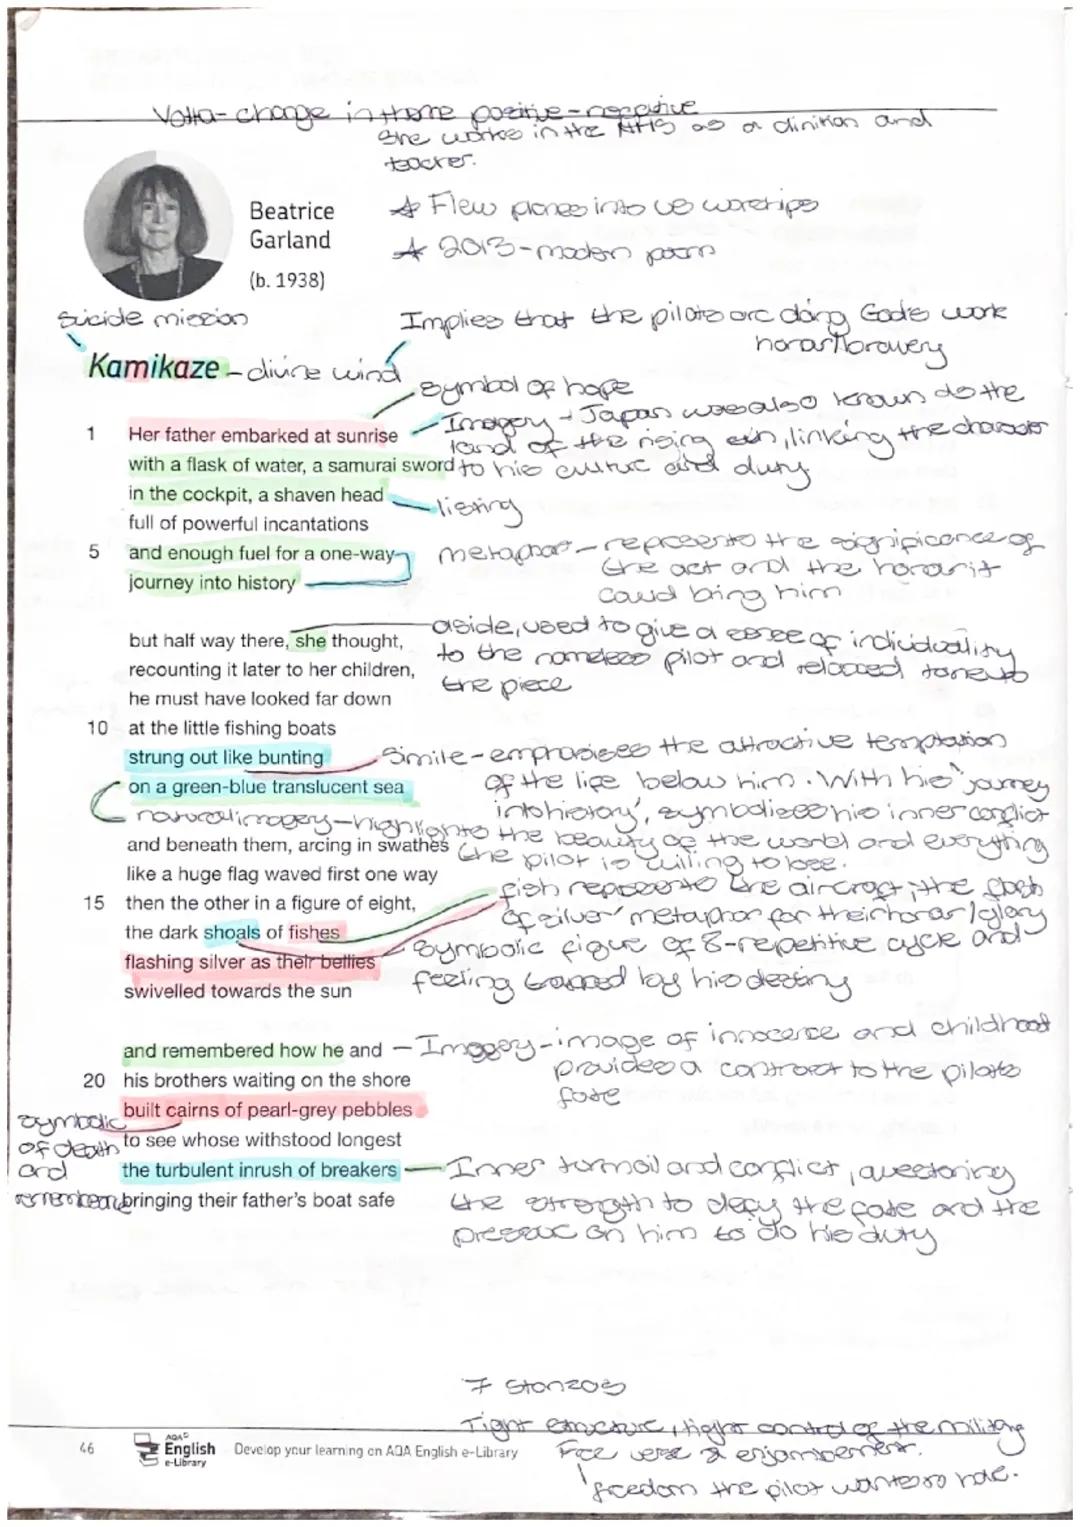 Volta- change in tone positive - negative
She works in the NHS as a clinitian and
teacher.
Beatrice
Garland
(b. 1938)
* Flew planes into US warships
* 2013 - modern poem
Suicide mission
Implies that the pilots are doing God's work
honour/bravery
Kamikaze - divine wind
symbol of hope
Imagery - Japan was also known as the
land of the rising sun, linking the character
to his culture and duty
1 Her father embarked at sunrise
with a flask of water, a samurai sword
in the cockpit, a shaven head
listing
full of powerful incantations
5 and enough fuel for a one-way
journey into history
metaphor - represents the significance of
the act and the honour it
could bring him
but half way there, she thought,
recounting it later to her children,
he must have looked far down
aside, used to give a sense of individuality
to the nameless pilot and relaxed tone to
the piece
10 at the little fishing boats
strung out like bunting
on a green-blue translucent sea
Simile - emphasises the attractive temptation
of the life below him. With his 'journey
into history', symbolises his inner conflict
natural imagery - highlights the beauty of the world and everything
the pilot is willing to lose.
and beneath them, arcing in swathes
like a huge flag waved first one way
15 then the other in a figure of eight,
the dark shoals of fishes
flashing silver as their bellies
swivelled towards the sun
fish represents the aircraft, the flash
of silver' metaphor for their honour/glory
Symbolic figure of 8 - repetitive cycle and
feeling trapped by his destiny
and remembered how he and
20 his brothers waiting on the shore
built cairns of pearl-grey pebbles
to see whose withstood longest
the turbulent inrush of breakers
bringing their father's boat safe
Imagery - image of innocence and childhood
provides a contrast to the pilots
fate
symbolic
of death
and
Inner turmoil and conflict, questioning
the strength to defy the fate and the
pressure on him to do his duty
7 stanzas
Tight structure, tight control of the military
Free verse & enjambement.
freedom the pilot wants to have.
46
AQA
English
e-Library
Develop your learning on AQA English e-Library